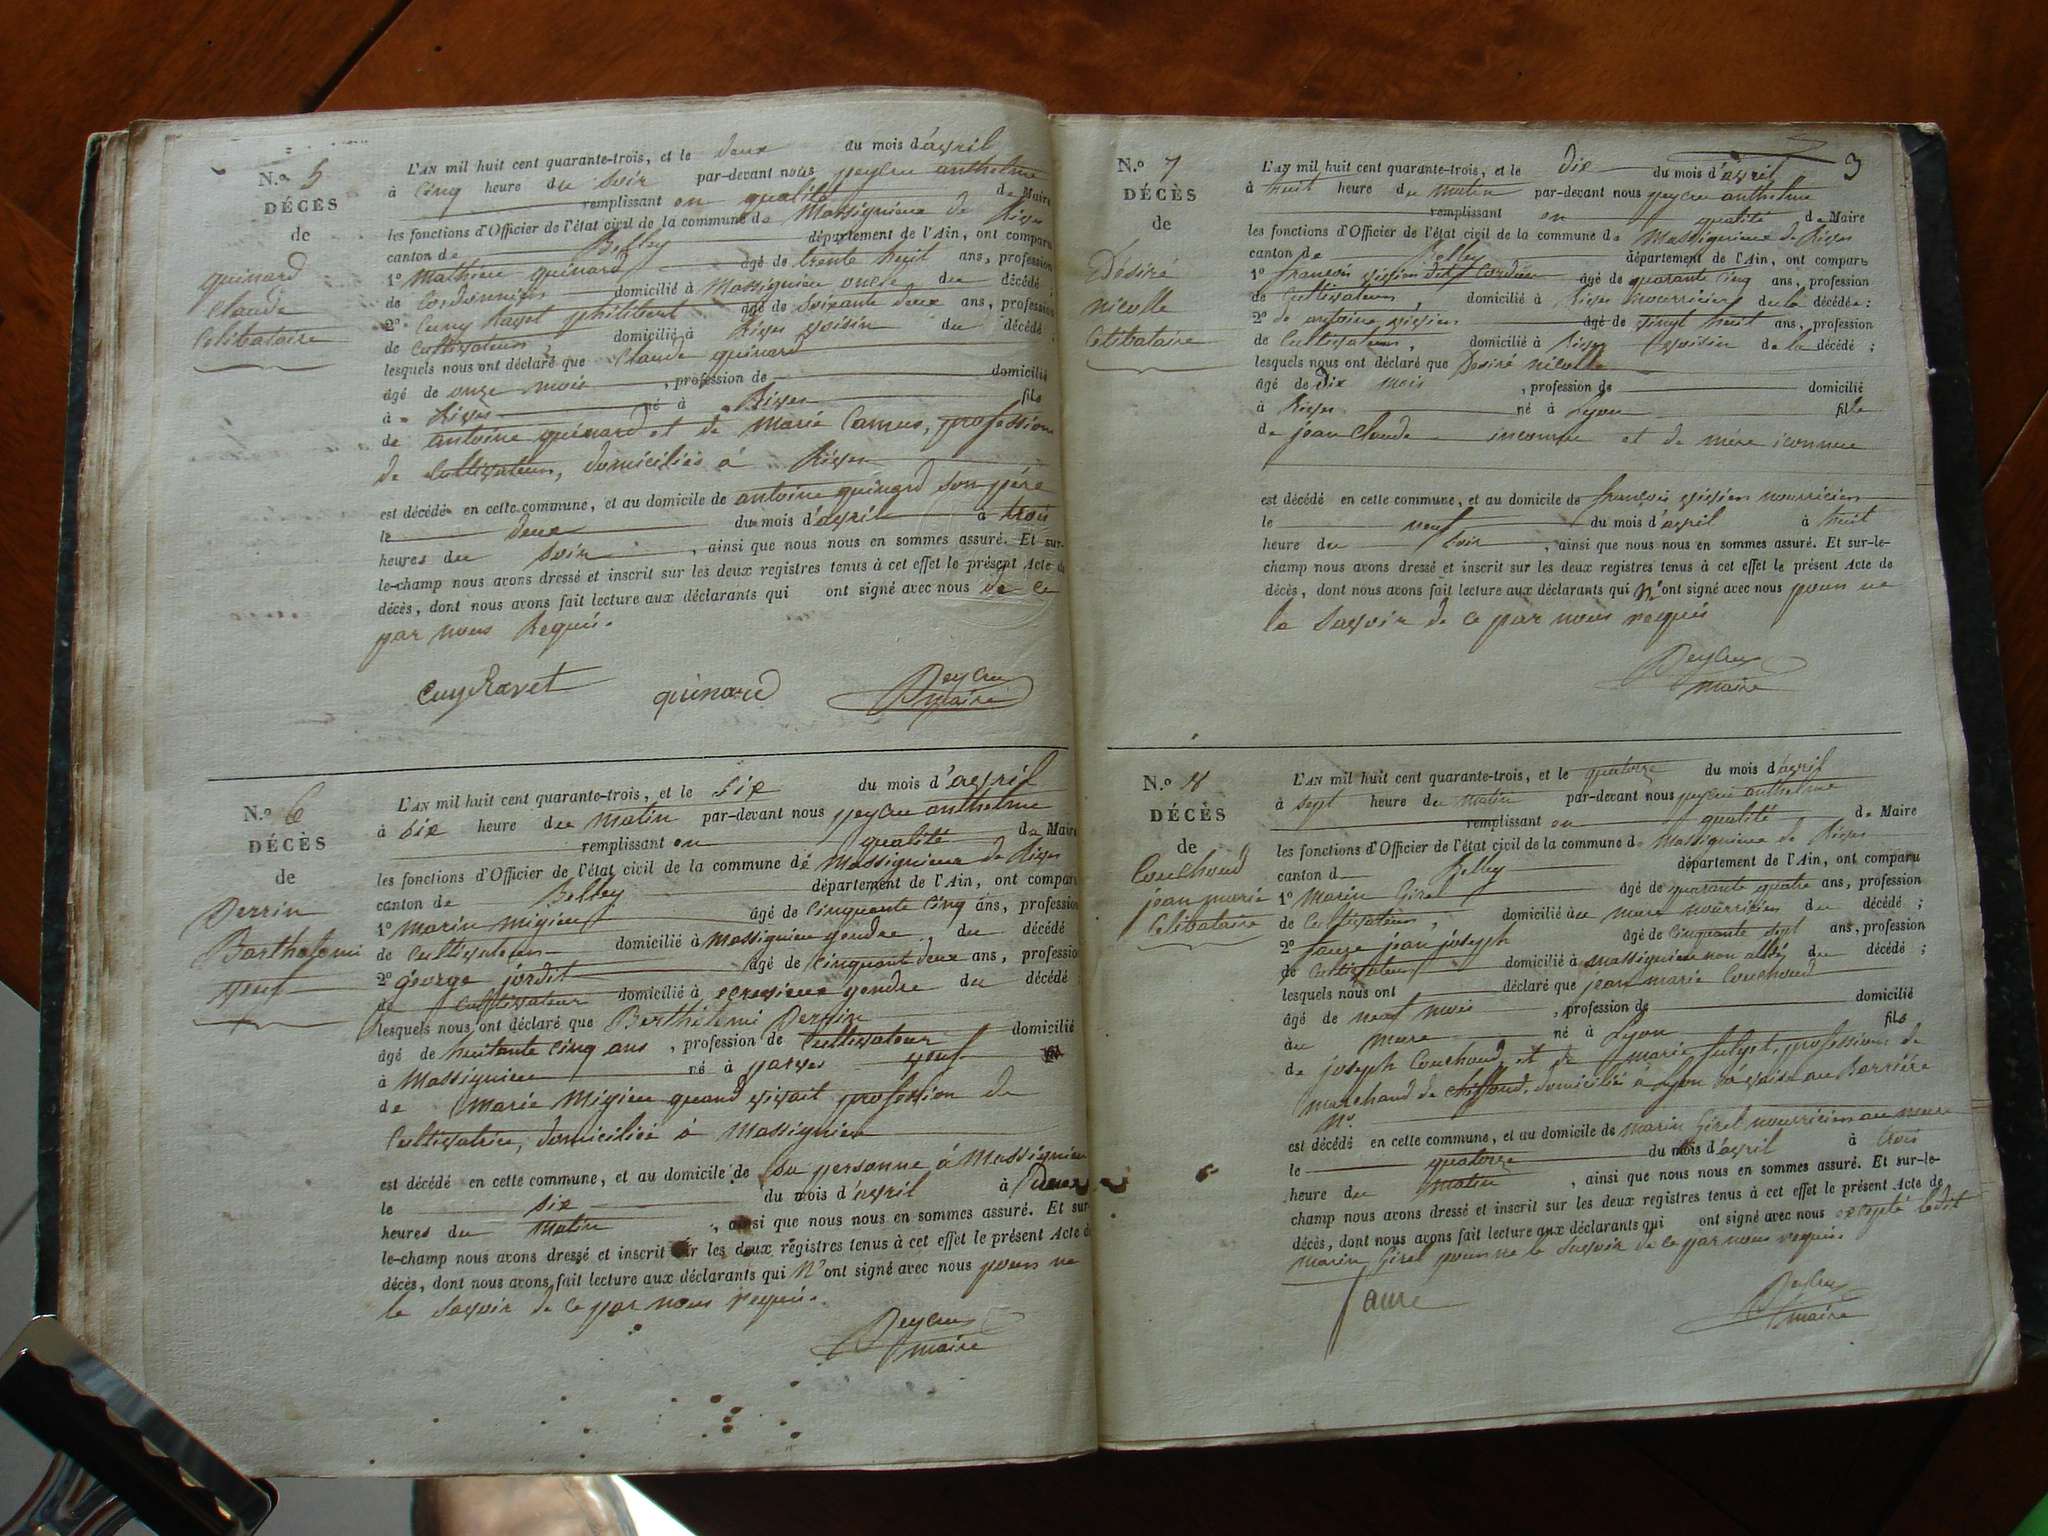 N.º 5
DÉCÈS
de
quinard
Claude
Célibataire
L'AN mil huit cent quarante-trois, et le deux du mois d'avril
à cinq heure du soir par-devant nous peysru anthelme
remplissant en qualité de Maire
les fonctions d'Officier de l'état civil de la commune de Massignieu de Rives
canton de Belley département de l'Ain, ont comparu
1º Mathieu quinard âgé de trente huit ans, profession
de Cordonnier domicilié à Massignieu oncle du décédé ;
2º Cuny Ravet philibert âgé de soixante deux ans, profession
de Cultivateur, domicilié à Rives voisin du décédé ;
lesquels nous ont déclaré que Claude quinard
âgé de onze mois , profession de domicilié
à Rives né à Rives fils
de antoine quinard et de Marie Camus, profession
de Cultivateur, domiciliés à Rives
est décédé en cette commune, et au domicile de antoine quinard son père
le deux du mois d'avril à trois
heures du soir , ainsi que nous nous en sommes assuré. Et sur-
le-champ nous avons dressé et inscrit sur les deux registres tenus à cet effet le présent Acte de
décès, dont nous avons fait lecture aux déclarants qui ont signé avec nous de ce
par nous Requis.
Cuny Ravet quinard
maire
N.º 6
DÉCÈS
de
Perrin
Barthelemi
veuf
L'AN mil huit cent quarante-trois, et le six du mois d'avril
à six heure du matin par-devant nous anthelme
remplissant en qualité de Maire
les fonctions d'Officier de l'état civil de la commune de Massignieu de Rives
canton de Belley département de l'Ain, ont comparu
1º marin migieu âgé de cinquante cinq ans, profession
de Cultivateur domicilié à Massignieu gendre du décédé
2º george jordit âgé de cinquant deux ans, profession
de Cultivateur domicilié à gendre du décédé
lesquels nous ont déclaré que Berthelemi Perrin
âgé de huitante cinq ans , profession de Cultivateur domicilié
à Massignieu né à parves veuf
de Marie Migieu quand vivait profession de
Cultivatrice, domiciliée à Massignieu
est décédé en cette commune, et au domicile de sa personne à Massignieu
le six du mois d'avril à Deux
heures du matin , ainsi que nous nous en sommes assuré. Et sur-
le-champ nous avons dressé et inscrit sur les deux registres tenus à cet effet le présent Acte de
décès, dont nous avons fait lecture aux déclarants qui N'ont signé avec nous pour ne
le savoir de ce par nous requis.
maire
3
N.º 7
DÉCÈS
de
Désiré
nicolle
Célibataire
L'AN mil huit cent quarante-trois, et le dix du mois d'avril
à huit heure du matin par-devant nous anthelme
remplissant en qualité de Maire
les fonctions d'Officier de l'état civil de la commune de Massignieu de Rives
canton de Belley département de l'Ain, ont comparu
1º françois vivien dit Cordier âgé de quarante cinq ans, profession
de Cultivateur, domicilié à Rives nourricier de la décédée ;
2º de antoine vivien âgé de vingt huit ans, profession
de Cultivateur, domicilié à Rives voisin de la décédé ;
lesquels nous ont déclaré que Desiré nicolle
âgé de Dix mois , profession de domicilié
à Rives né à Lyon fille
de jean Claude inconnu et de mère iconnue
est décédé en cette commune, et au domicile de françois vivien nourricier
le neuf du mois d'avril à huit
heure du soir , ainsi que nous nous en sommes assuré. Et sur-le-
champ nous avons dressé et inscrit sur les deux registres tenus à cet effet le présent Acte de
décès, dont nous avons fait lecture aux déclarants qui N'ont signé avec nous pour ne
le savoir de ce par nous requis
maire
N.º 8
DÉCÈS
de
Couchoud
jean marie
Célibataire
L'AN mil huit cent quarante-trois, et le quatorze du mois d'avril
à sept heure du matin par-devant nous anthelme
remplissant en qualité de Maire
les fonctions d'Officier de l'état civil de la commune de Massignieu de Rives
canton d Belley département de l'Ain, ont comparu
1º Marin Girel âgé de quarante quatre ans, profession
de Cultivateur, domicilié au mure nourricier du décédé ;
2º faure jean joseph âgé de cinquante sept ans, profession
de Cultivateur domicilié à Massignieu non allié du décédé ;
lesquels nous ont déclaré que jean marie Couchoud
âgé de neuf mois , profession de domicilié
au mure né à Lyon fils
de joseph Couchoud et de marie, profession de
marchand de chiffond, domicilié à Lyon à vaise au Barrière
nº
est décédé en cette commune, et au domicile de marin Girel nourricier au mure
le quatorze du mois d'avril à trois
heure du matin , ainsi que nous nous en sommes assuré. Et sur-le-
champ nous avons dressé et inscrit sur les deux registres tenus à cet effet le présent Acte de
décès, dont nous avons fait lecture aux déclarants qui ont signé avec nous excepté ledit
marin Girel pour ne le savoir de ce par nous requis.
faure
maire